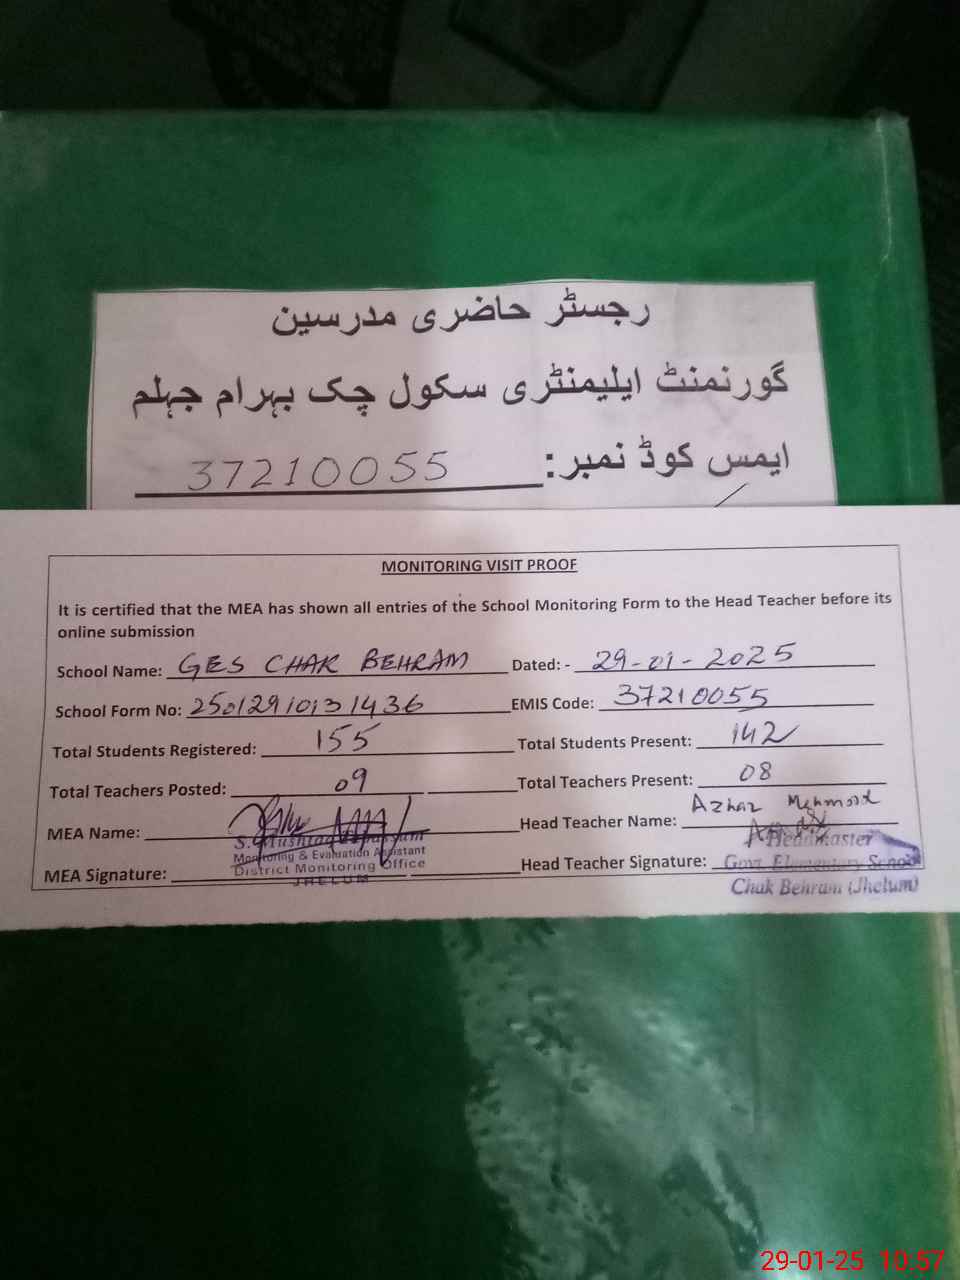 رجسٹر حاضری مدرسین
گورنمنٹ ایلیمنٹری سکول چک بہرام جہلم
ایمس کوڈ نمبر: 37210055
MONITORING VISIT PROOF
It is certified that the MEA has shown all entries of the School Monitoring Form to the Head Teacher before its
online submission
School Name: GES CHAK BEHRAM Dated: - 29-01-2025
School Form No: 25012910131436 EMIS Code: 37210055
Total Students Registered: 155 Total Students Present: 142
Total Teachers Posted: 09 Total Teachers Present: 08
MEA Name: Head Teacher Name: Azhar Mehmood
S. Mushtaq
Monitoring & Evaluation Assistant
District Monitoring Office
JHELUM
MEA Signature: Head Teacher Signature:
Headmaster
Govt. Elementary School
Chak Behram (Jhelum)
29-01-25 10:57